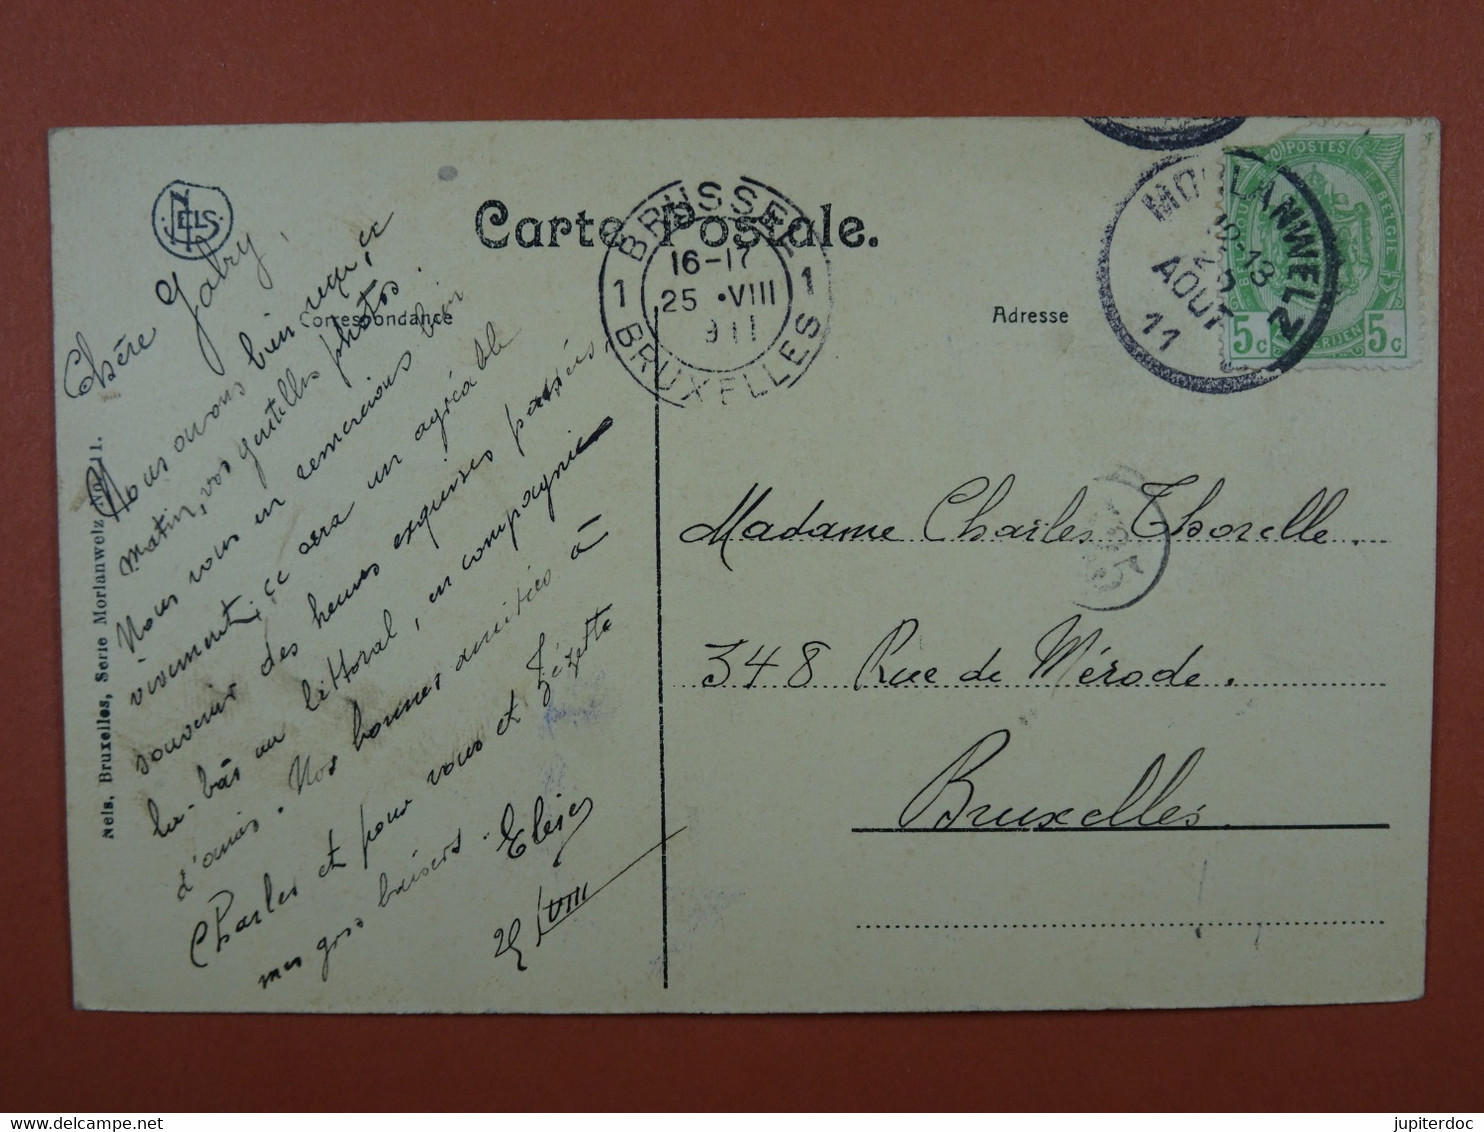 NELS
Carte Postale.
Correspondance
Adresse
BRUSSEL
16-17
25 • VIII
911
1 1
BRUXELLES
MORLANWELZ
12-13
AOUT
11
POSTES
5c 5c
Chère Gabry,
Nous avons bien reçu, ce
matin, vos gentilles photos.
Nous vous en remercions bien
vivement; ce sera un agréable
souvenir des heures exquises passées,
là-bas au littoral, en compagnie
d'amis. Nos bonnes amitiés à
Charles et pour vous et Zézette
mes gros baisers.
25/VIII
Madame Charles Thorelle.
348 Rue de Mérode.
Bruxelles.
Nels, Bruxelles, Serie Morlanwelz No. 11.
jupiterdoc